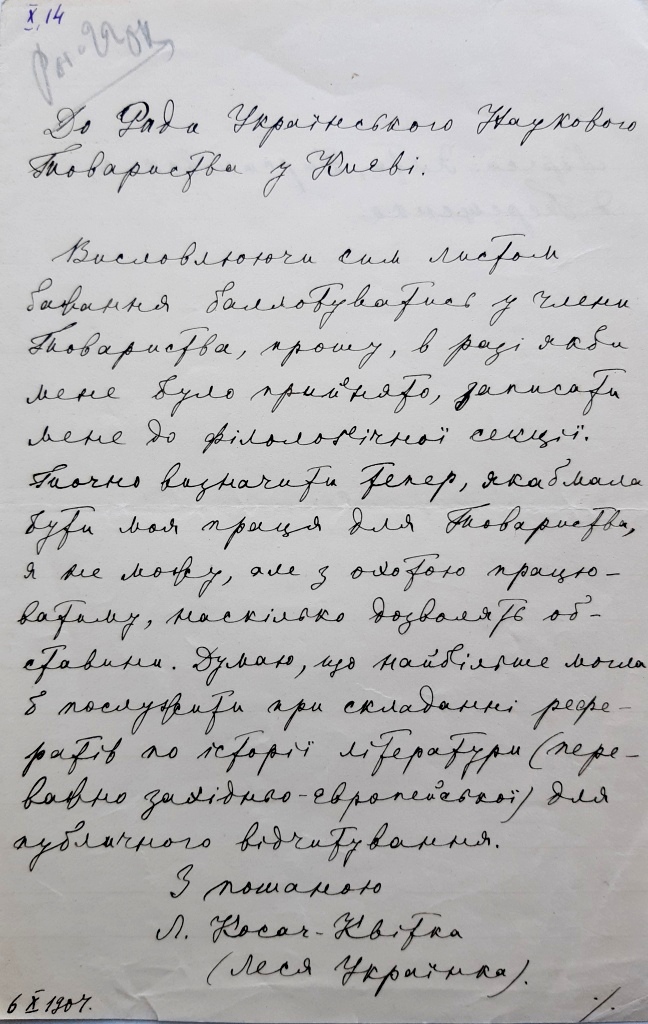 X, 14
До Ради Українського Наукового
Товариства у Києві.
Висловлюючи сим листом
бажання баллотуватись у члени
Товариства, прошу, в разі якби
мене було прийнято, записати
мене до філологічної секції.
Точно визначити тепер, яка б мала
бути моя праця для Товариства,
я не можу, але з охотою працю-
ватиму, наскілько дозволять об-
ставини. Думаю, що найбільше могла
б послужити при складанні рефе-
ратів по історії літератури (пере-
важно західньо-европейської) для
публичного відчитування.
З пошаною
Л. Косач-Квітка
(Леся Українка).
6 X 1907.